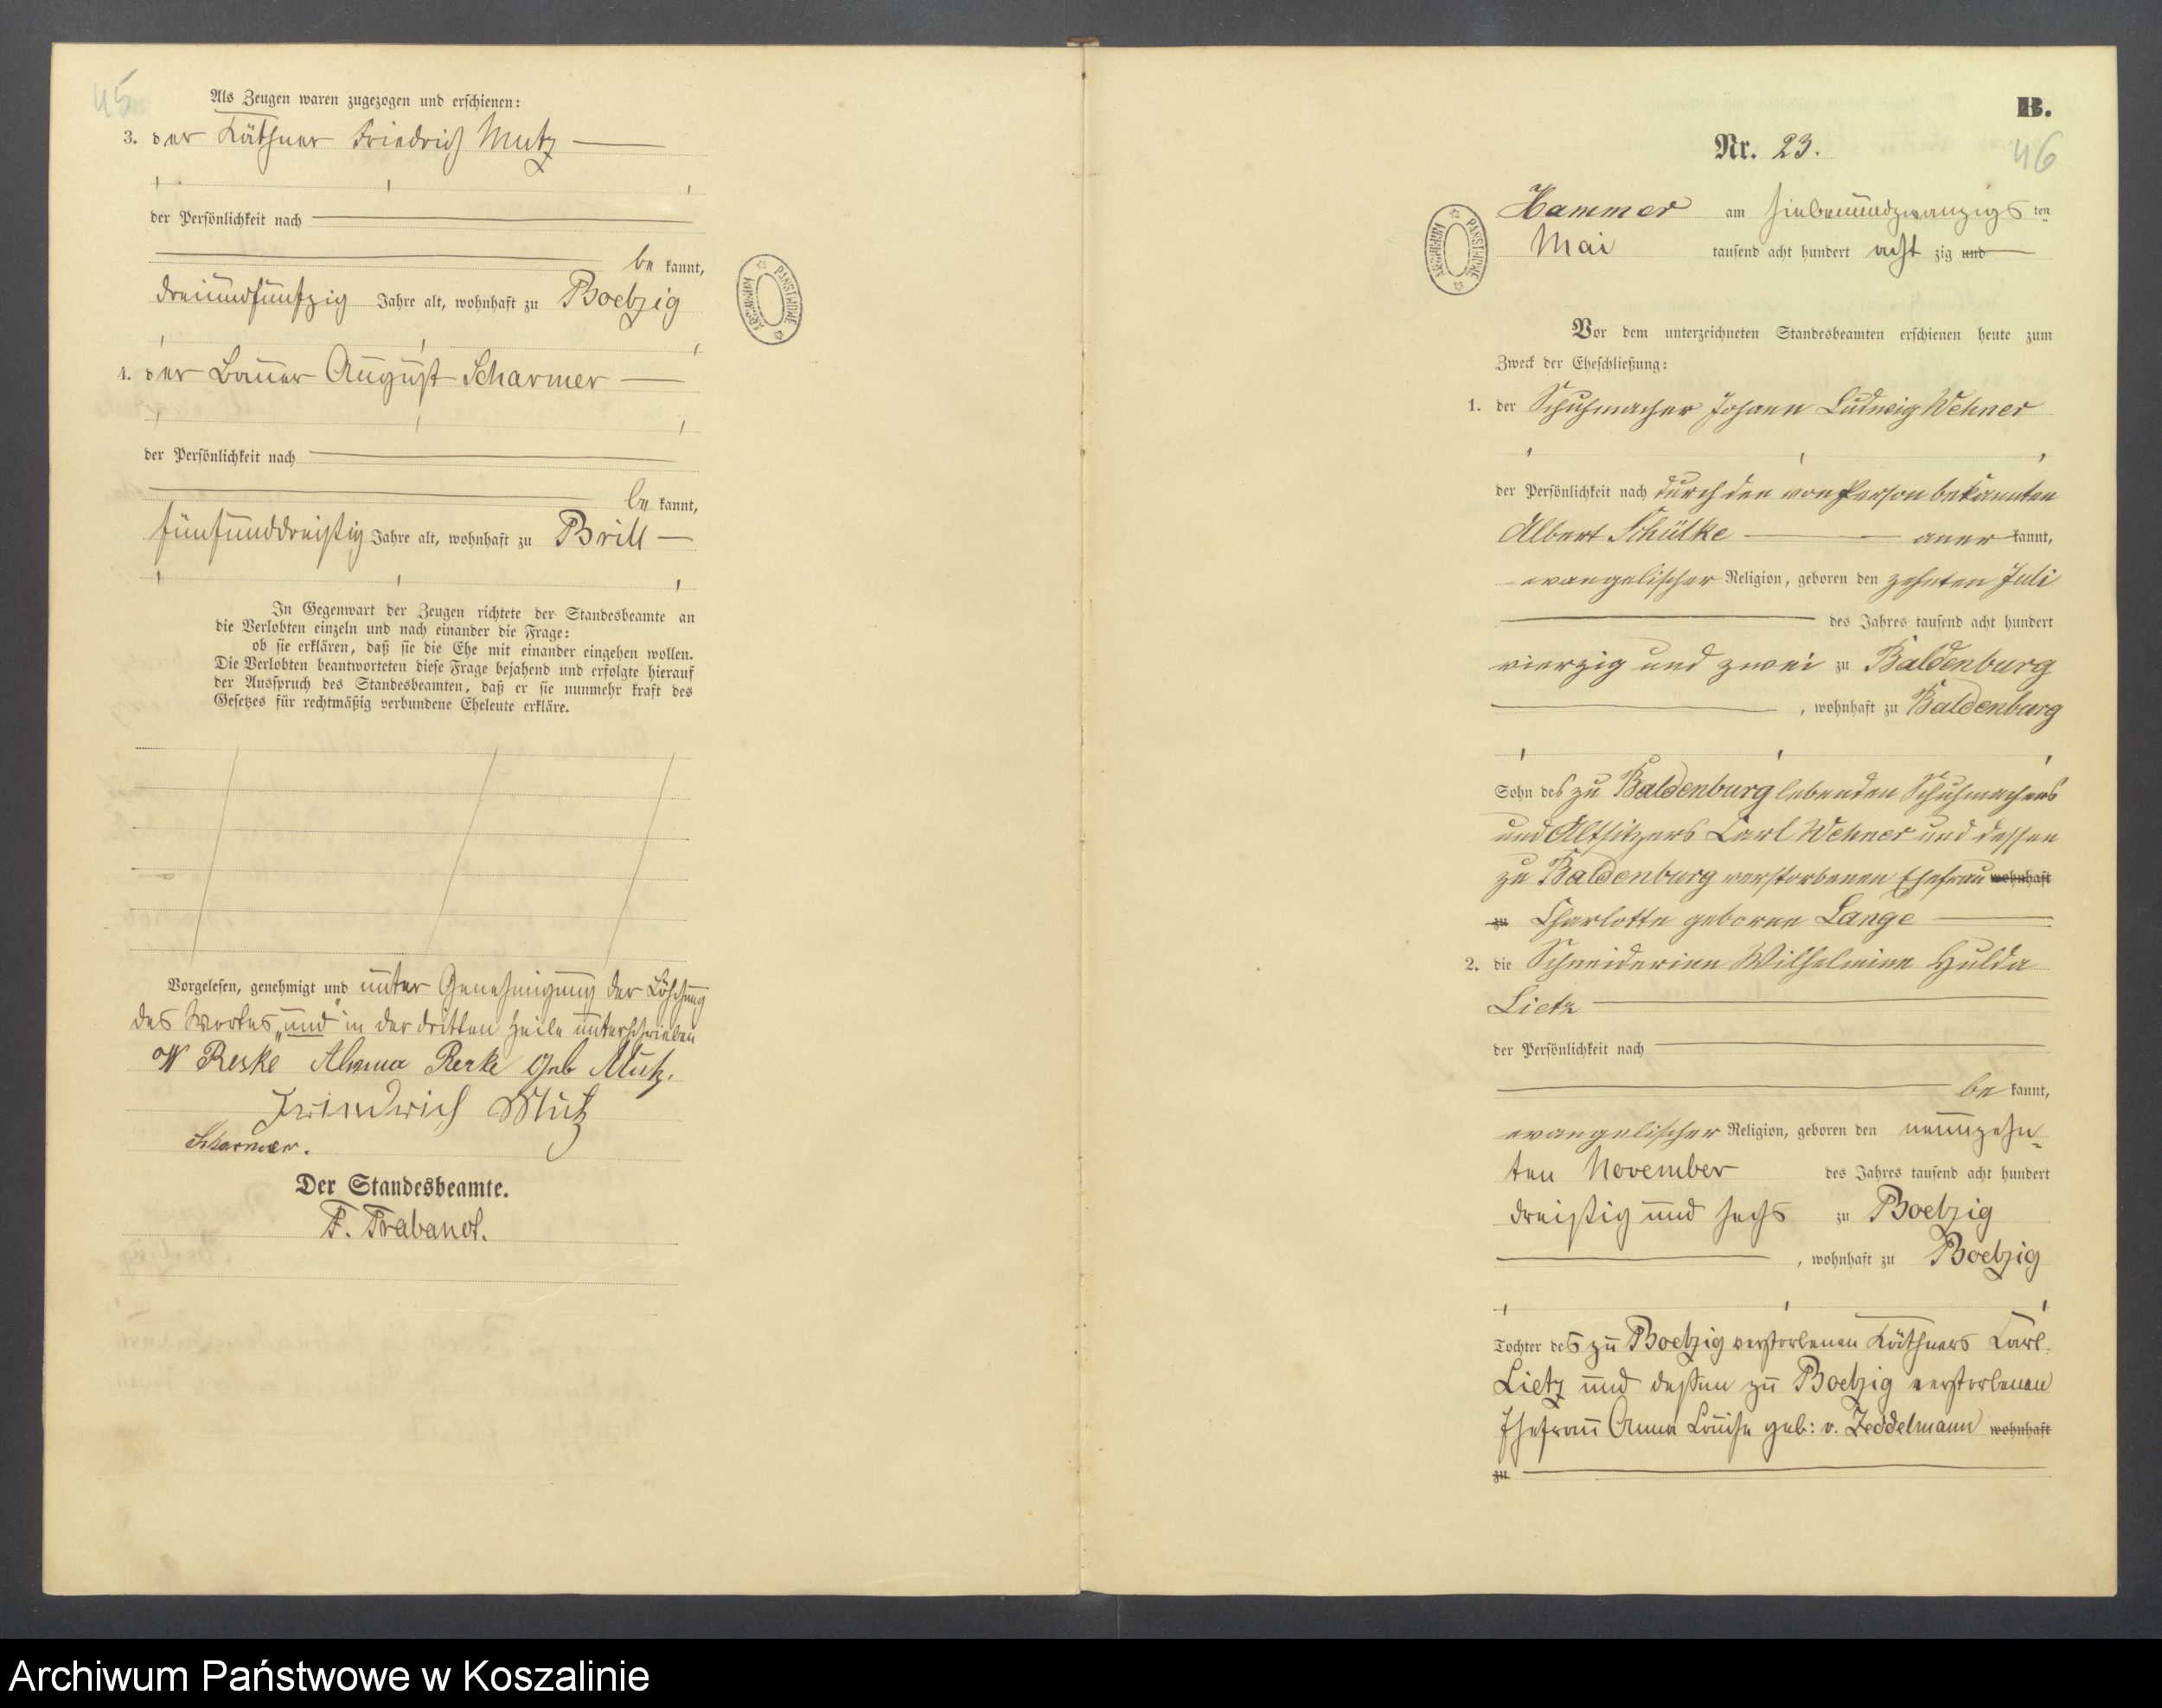 45
Als Zeugen waren zugezogen und erschienen:
3. der Käthner Friedrich Mutz
der Persönlichkeit nach
be kannt,
dreiundfünfzig Jahre alt, wohnhaft zu Boetzig
4. der Bauer August Scharmer
der Persönlichkeit nach
be kannt,
fünfunddreißig Jahre alt, wohnhaft zu Brill
In Gegenwart der Zeugen richtete der Standesbeamte an
die Verlobten einzeln und nach einander die Frage:
ob sie erklären, daß sie die Ehe mit einander eingehen wollen.
Die Verlobten beantworteten diese Frage bejahend und erfolgte hierauf
der Ausspruch des Standesbeamten, daß er sie nunmehr kraft des
Gesetzes für rechtmäßig verbundene Eheleute erkläre.
Vorgelesen, genehmigt und unter Genehmigung der Löschung
des Wortes „und" in der dritten Zeile unterschrieben
W Reske Reske geb Mutz.
Friedrich Mutz
Scharmer.
Der Standesbeamte.
F. Trabandt.
B.
Nr. 23.
46
ARCHIWUM PAŃSTWOWE
Hammer am siebenundzwanzigs ten
Mai tausend acht hundert acht zig und
Vor dem unterzeichneten Standesbeamten erschienen heute zum
Zweck der Eheschließung:
1. der Schuhmacher Johann Ludwig Wehner
der Persönlichkeit nach durch den von Person bekannten
Albert Schülke aner kannt,
evangelischer Religion, geboren den zehnten Juli
des Jahres tausend acht hundert
vierzig und zwei zu Baldenburg
, wohnhaft zu Baldenburg
Sohn des zu Baldenburg lebenden Schuhmachers
und Altsitzers Carl Wehner und dessen
zu Baldenburg verstorbenen Ehefrau wohnhaft
zu Charlotte geborne Lange
2. die Schneiderinn Wilhelmine Hulda
Lietz
der Persönlichkeit nach
be kannt,
evangelischer Religion, geboren den neunzehn-
ten November des Jahres tausend acht hundert
dreißig und sechs zu Boetzig
, wohnhaft zu Boetzig
Tochter des zu Boetzig verstorbenen Käthners Carl
Lietz und deßen zu Boetzig verstorbenen
Ehefrau Anna Louise geb: v. Zeddelmann wohnhaft
zu
Archiwum Państwowe w Koszalinie